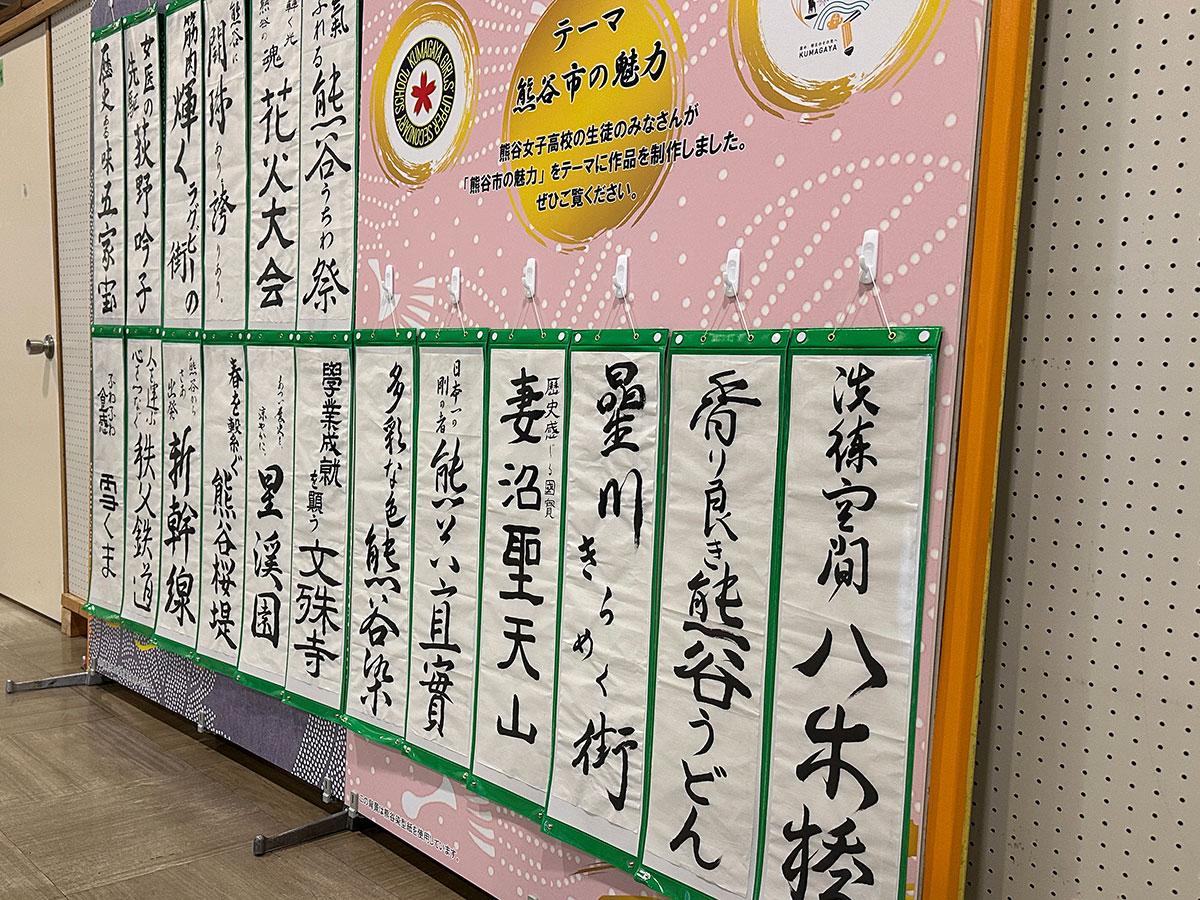 テーマ
熊谷市の魅力
熊谷女子高校の生徒のみなさんが
「熊谷市の魅力」をテーマに作品を制作しました。
ぜひご覧ください。
KUMAGAYA GIRLS UPPER SECONDARY SCHOOL
KUMAGAYA
ふれる
熊谷うちわ祭
熊谷の魂
花火大会
熊谷に
誇りあり。
筋肉輝く
ラグビーの街
女医の
先駆
荻野吟子
歴史ある味
五家宝
洗練空間
八木橋
香り良き
熊谷うどん
星川
きらめく街
歴史感じる国寶
妻沼聖天山
日本一の
剛の者
熊谷直實
多彩な色
熊谷染
學業成就
を願う
文殊寺
涼やかに、
星溪園
春を繋ぐ
熊谷桜堤
熊谷から
さあ出発
新幹線
人を運ぶ
心をつなぐ
秩父鉄道
ふわふわ
食感
雪くま
この背景は熊谷染型紙を使用しています。